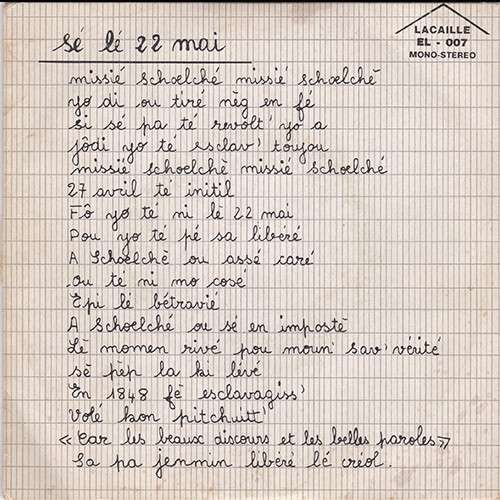 LACAILLE
EL - 007
MONO-STEREO
sé lé 22 mai
missié schoelché missié schoelchè
yo di ou tiré nèg en fé
si sé pa té revolt' yo a
jôdi yo té esclav' toujou
missié schoelchè missié schoelché
27 avril té initil
Fô yo té ni lè 22 mai
Pou yo té pé sa libéré
A Schoelchè ou assé caré
ou té ni mo cosé
Epi lé bétravié
A Schoelché ou sé en impostè
Lè momen rivé pou moun' sav' vérité
sè pèp la ki lévé
En 1848 fè esclavagiss'
volé kon pitchuitt'
« Car les beaux discours et les belles paroles »
Sa pa jenmin libéré lé créol.